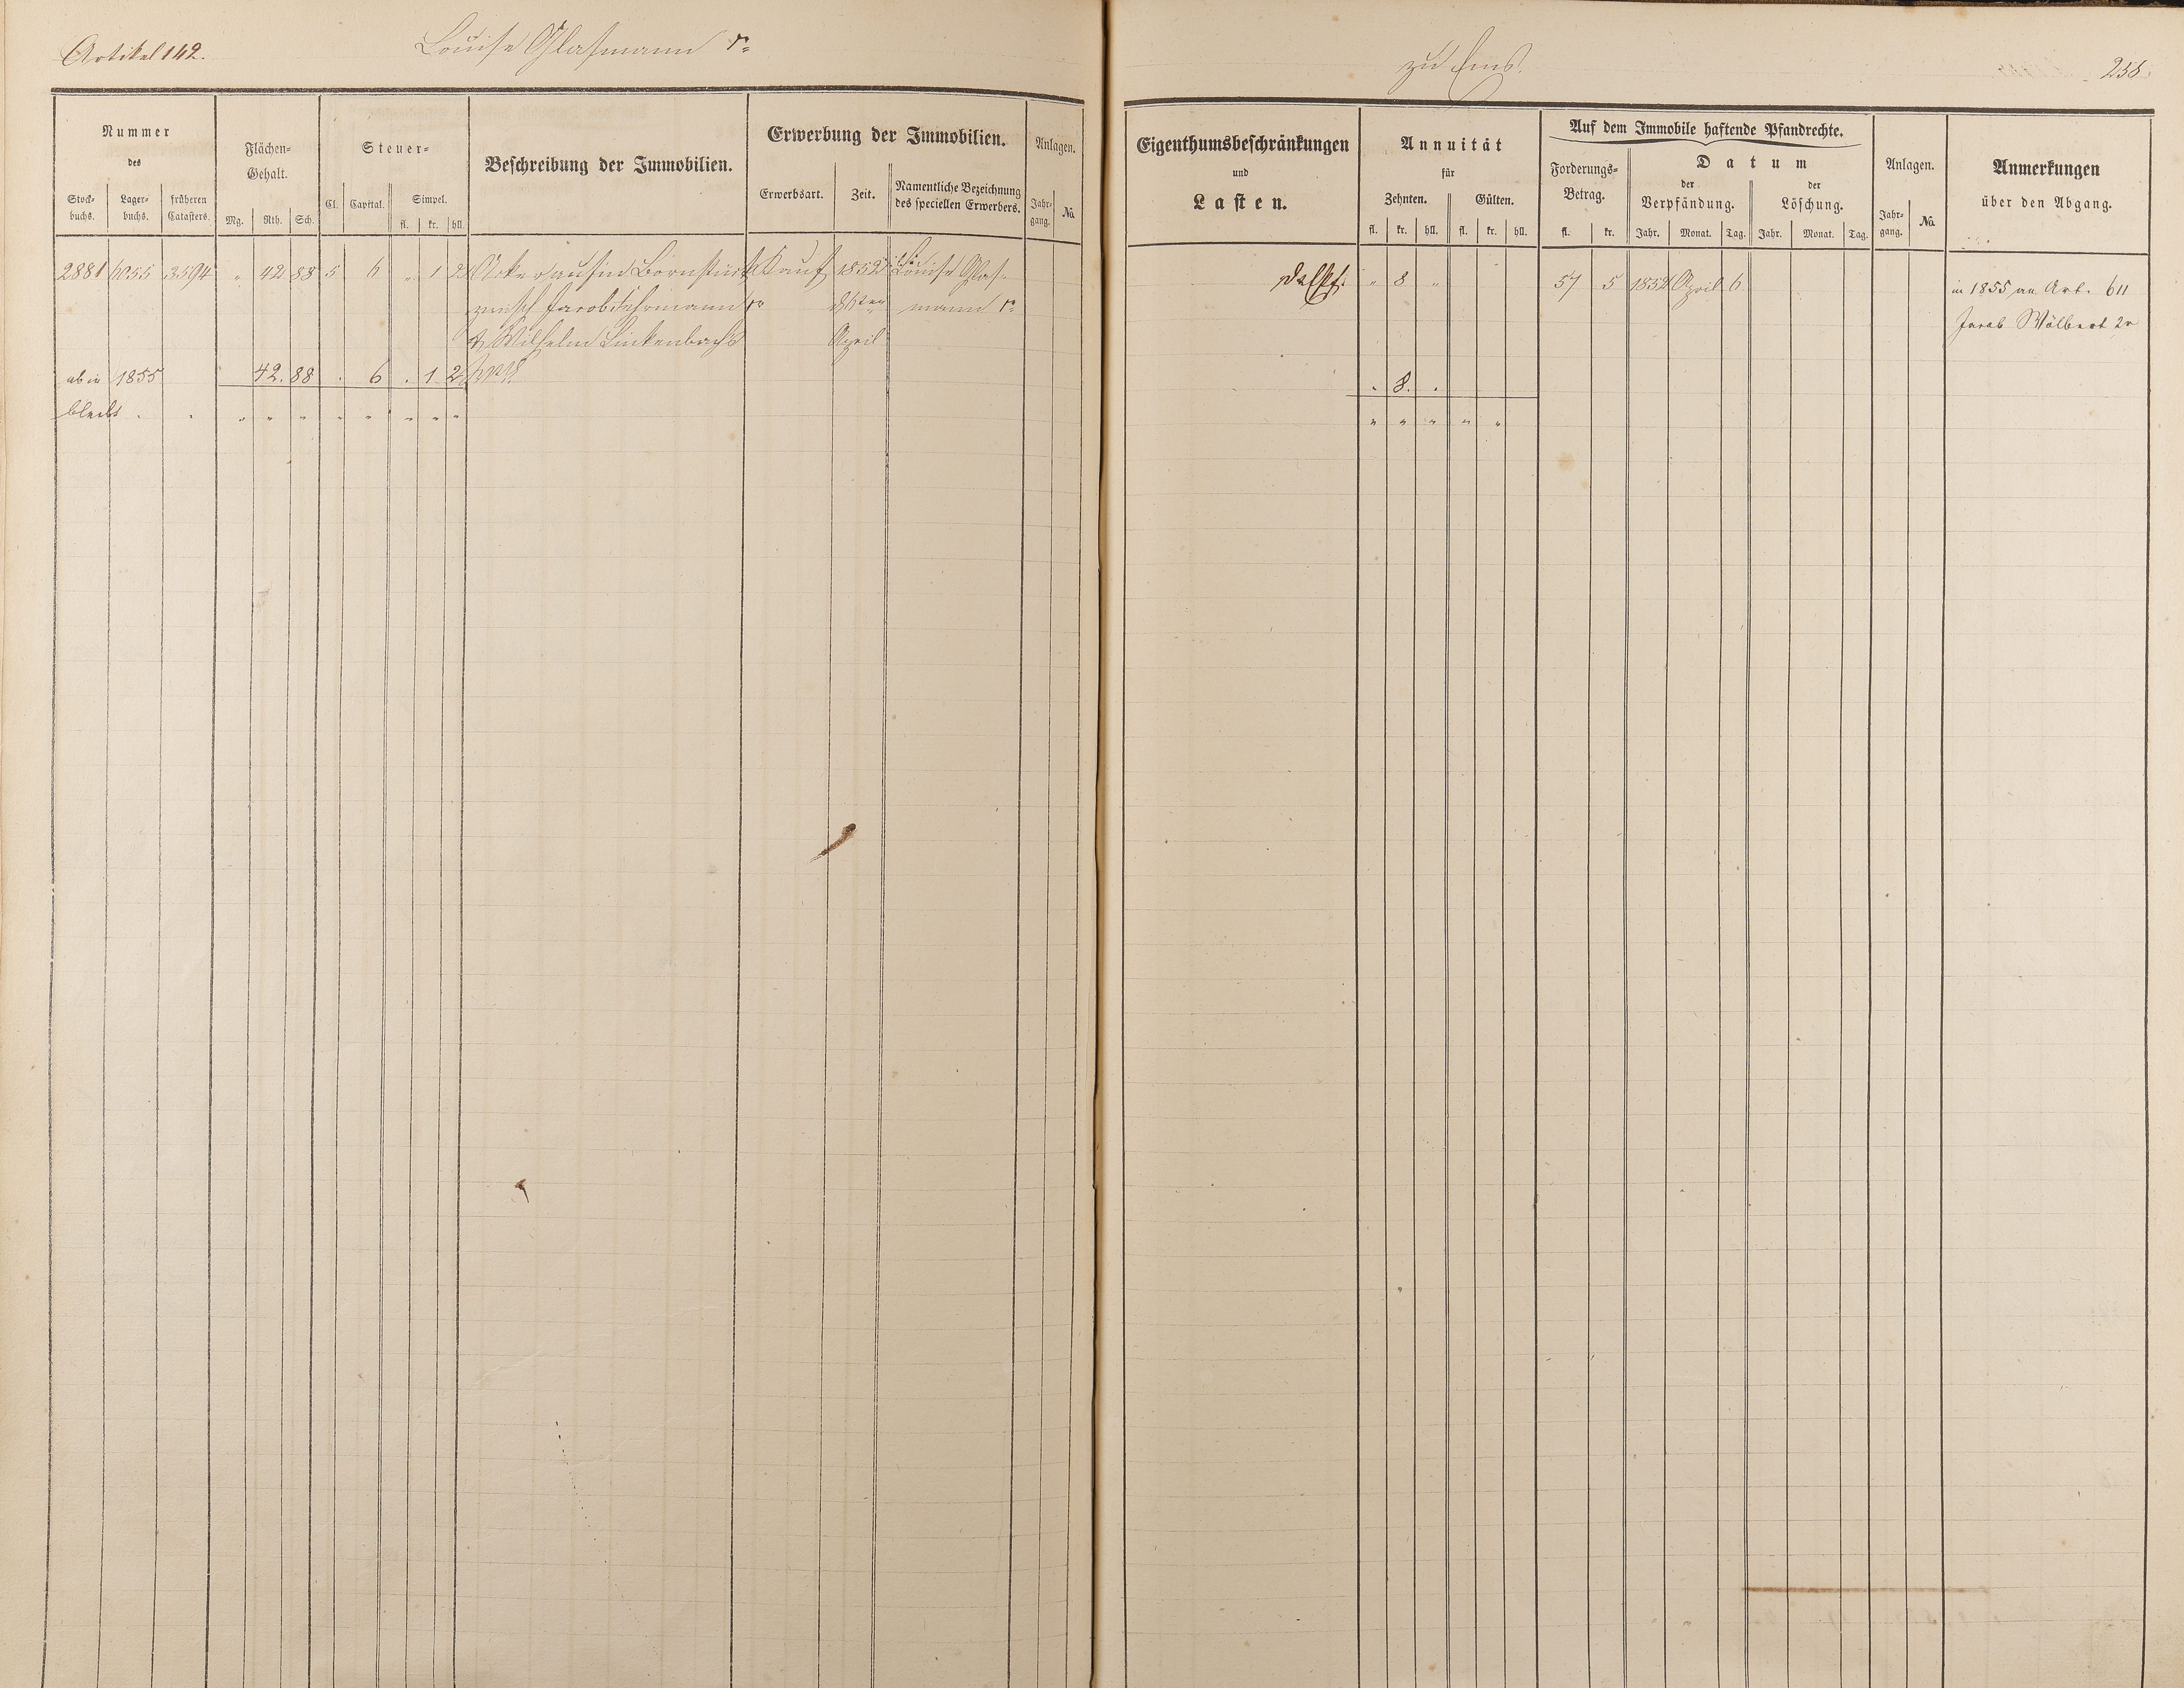 Artikel 142.
Louise Glasmann r.
zu Ems.
238.
Nummer
des
Stock-
buchs.
Lager-
buchs.
früheren
Catasters.
Flächen-
Gehalt.
Mg. Rth. Sch.
Steuer-
Cl. Capital.
Simpel.
fl. kr. hll.
Beschreibung der Immobilien.
Erwerbung der Immobilien.
Erwerbsart. Zeit.
Namentliche Bezeichnung
des speciellen Erwerbers.
Anlagen.
Jahr-
gang.
No.
Eigenthumsbeschränkungen
und
Lasten.
Annuität
für
Zehnten. Gülten.
fl. kr. hll. fl. kr. hll.
Auf dem Immobile haftende Pfandrechte.
Forderungs-
Betrag.
fl. kr.
Datum
der
Verpfändung.
der
Löschung.
Jahr. Monat. Tag. Jahr. Monat. Tag.
Anlagen.
Jahr-
gang.
No.
Anmerkungen
über den Abgang.
2881 1055 3594 " 42 88 5 6 " 1 2 Acker aufm Bornstück Kauf 1852 Louise Glas-
zwisch Jacob r. mann r.
& Wilhelm Linkenbach April
" 8 " 57 5 1852 April 6
in 1855 an Art. 611
Jacob Wölbert 2r
ab in 1855 42. 88 . 6 . 1 2
. 8. .
bleibt . . " " " " " " " "
" " " " "